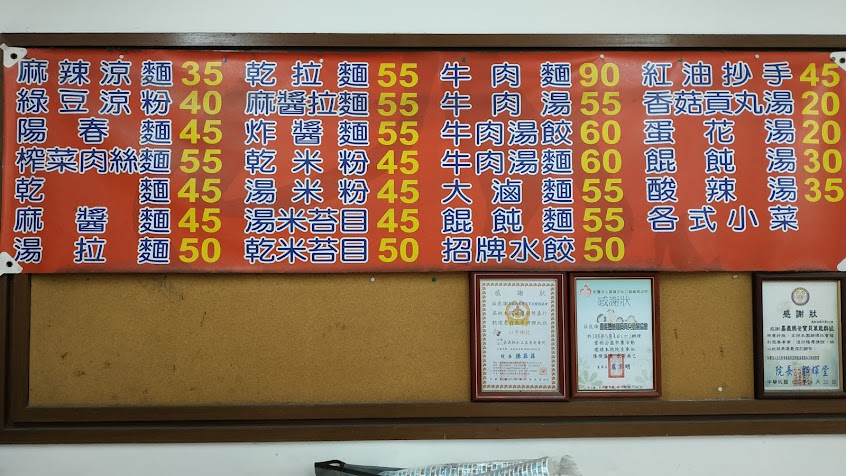 麻辣涼麵 35
綠豆涼粉 40
陽春麵 45
榨菜肉絲麵 55
乾麵 45
麻醬麵 45
湯拉麵 50
乾拉麵 55
麻醬拉麵 55
炸醬麵 55
乾米粉 45
湯米粉 45
湯米苔目 45
乾米苔目 50
牛肉麵 90
牛肉湯 55
牛肉湯餃 60
牛肉湯麵 60
大滷麵 55
餛飩麵 55
招牌水餃 50
紅油抄手 45
香菇貢丸湯 20
蛋花湯 20
餛飩湯 30
酸辣湯 35
各式小菜
感謝狀
感謝狀
感謝狀